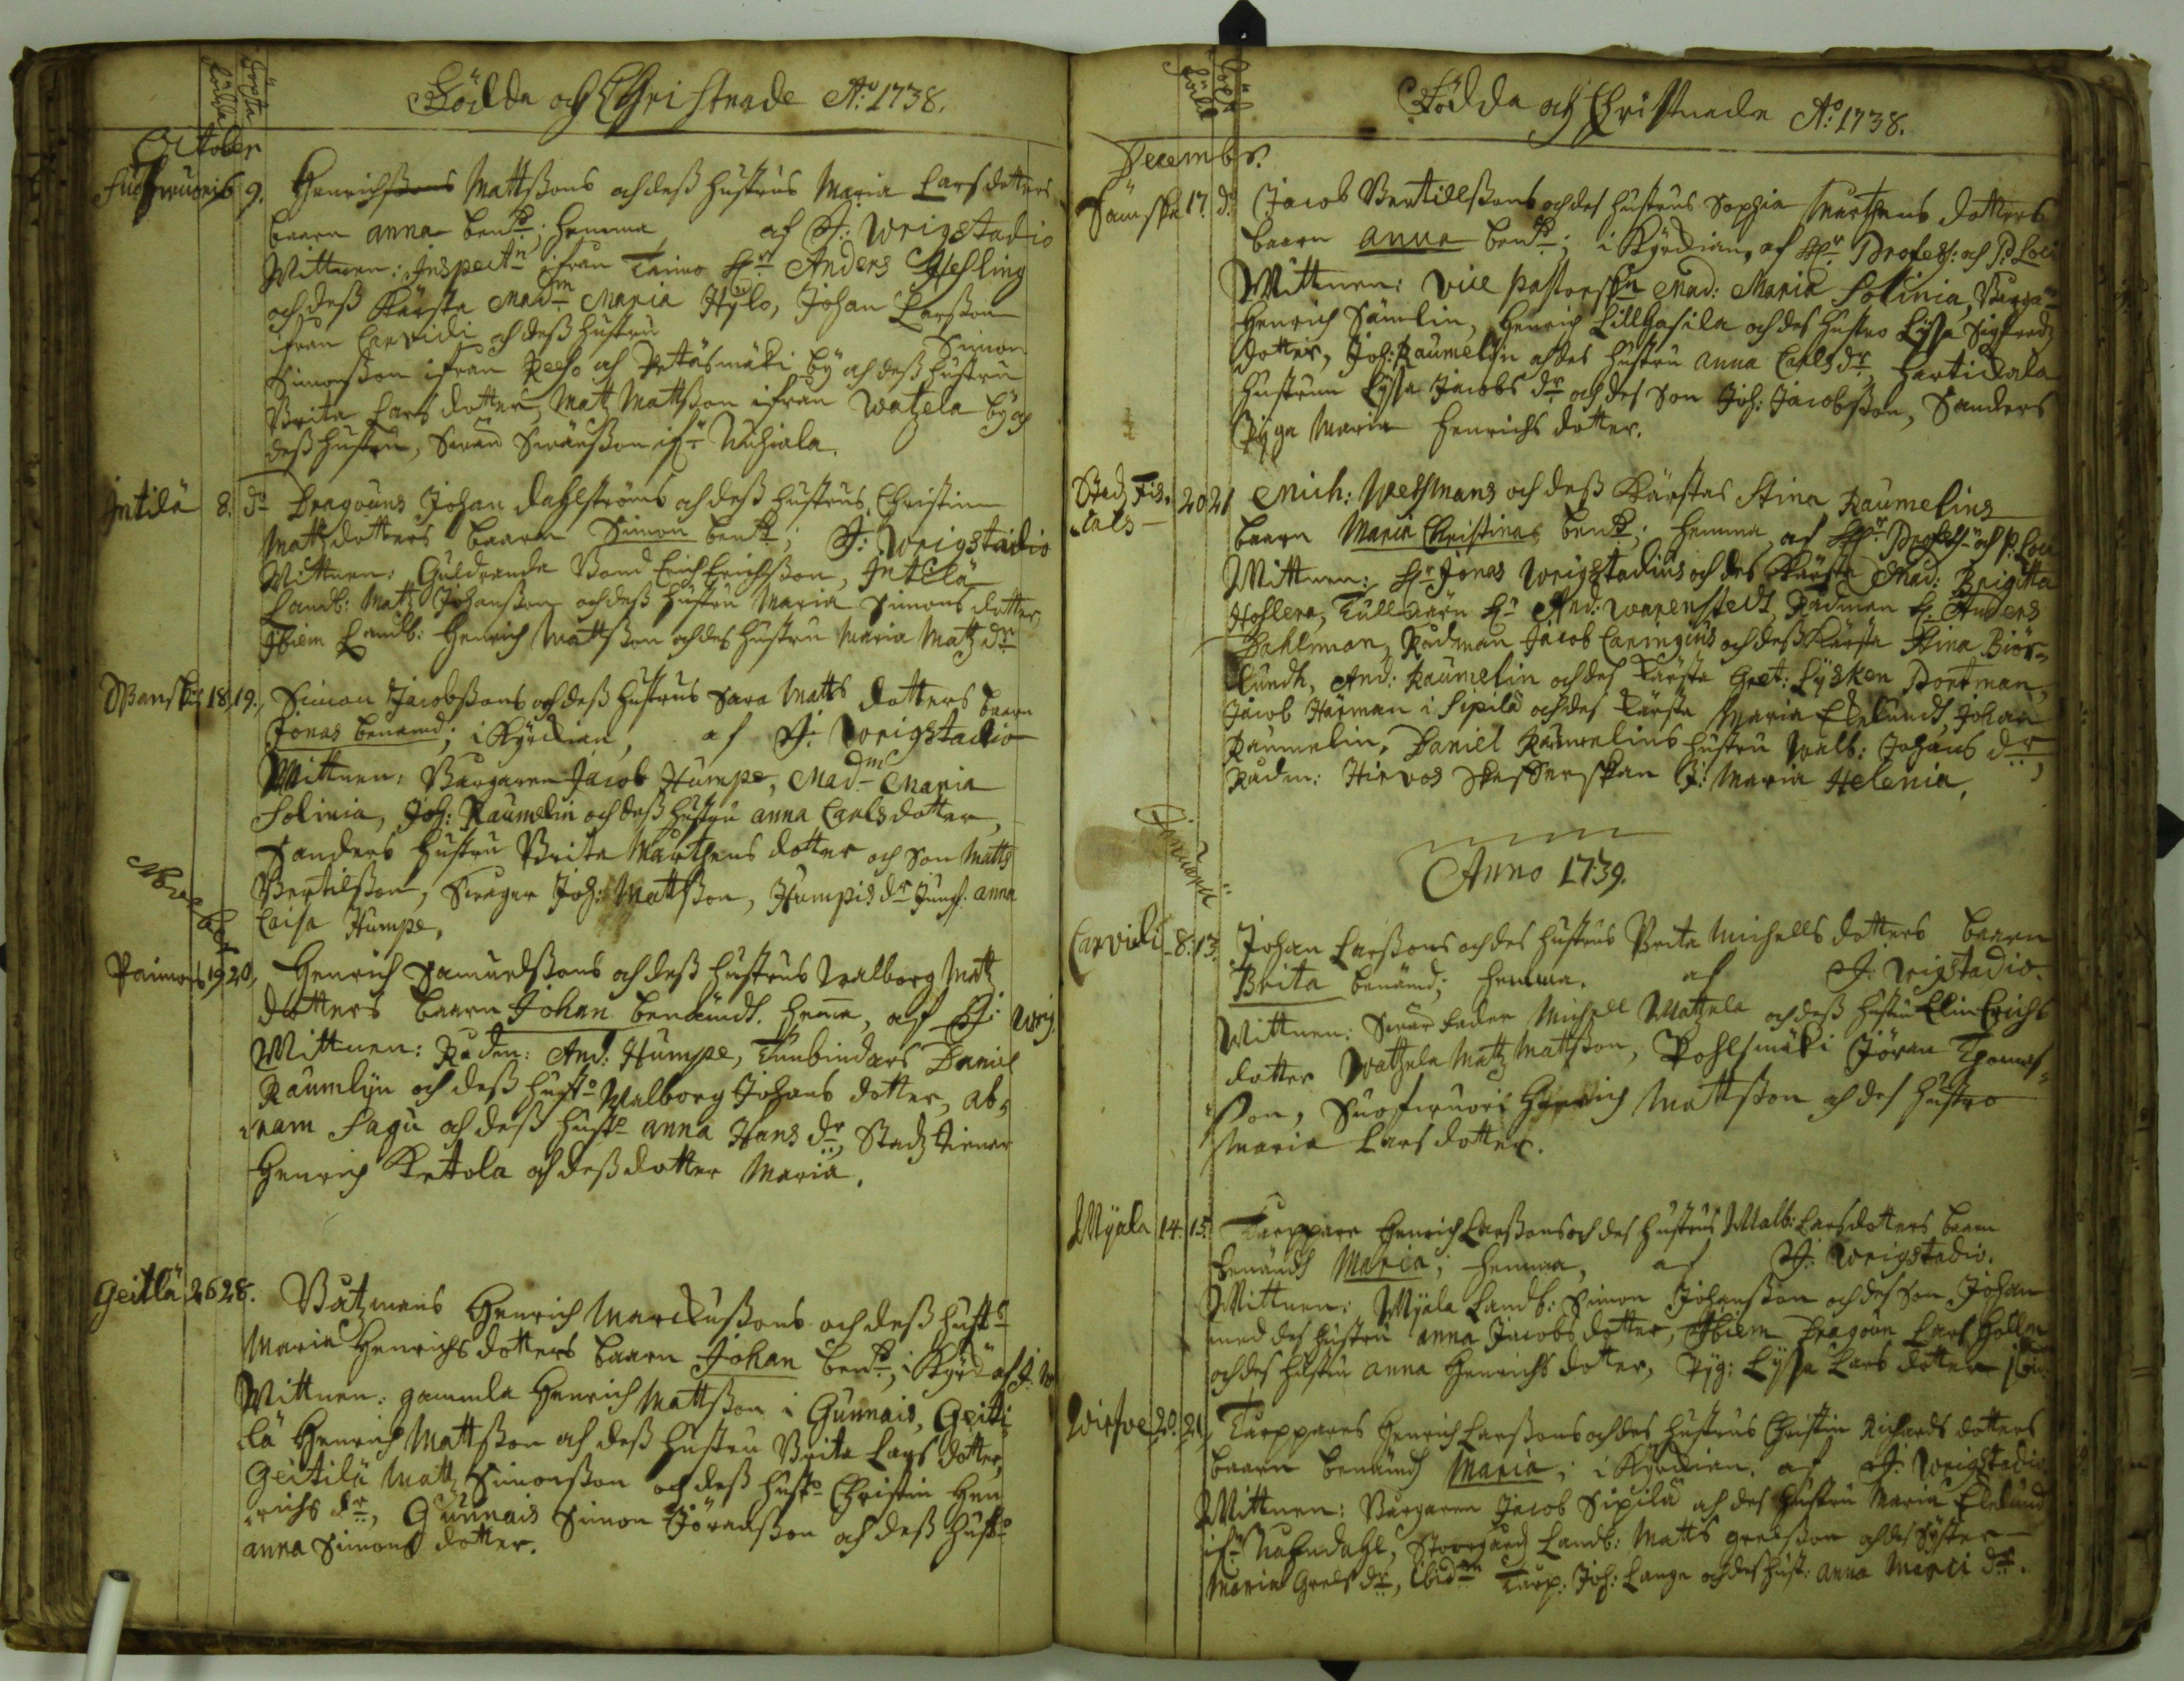 Födde Christna
Födda och Christnade A:o 1738.
October
6 9. Henrichssons Mattssons och dess hustrus Maria Larsdotters
baarn anna ben:d; hemma af J: Wrigstadio
Wittnen: Inspect:n ifrån Taimo H:r Anders Hesling
och dess Kärsta Mad:m Maria Hylo, Johan Larsson
ifrån Carvidi och dess hustru Simon
Simonsson ifrån och Petäsmäki bÿ och dess hustru
Brita Larsdotter, Matz Mattsson ifrån Watzela bÿ och
dess hustru,
Intilä 8. d:o Dragouns Johan Dahlströms och dess hustrus Christin
Matzdotters baarn Simon ben:d; J: Wrigstadio
Wittnen: Guldranda Bond Erich Erichsson, Intelä
Landb: Matz Johansson och dess hustru Maria Simonsdotter,
Ibiem Landb: Henrich Mattsson och des hustru Maria Matzd:r
18. 19. Simon Jacobssons och dess hustrus Sara Matts dotters baarn
Jonas benämd; i Kÿrckian, af J. Wrigstadio
Wittnen: Borgaren Jacob Humpe, Mad:m Maria
Solinia, Joh: Raumelin och dess hustru anna Carlsdotter,
Sanders hustru Brita Mårthens dotter och Son Matts
Bertilsson, Joh: Mattsson, Humpis d:r Jungf. anna
Caisa Humpe,
November
Paimois 19 20, Henrich Samuelssons och dess hustrus Walborg Matz
dotters baarn Johan benämdt. hema, af J: Wrig.
Wittnen: Rådm: And: Humpe, Tunbindars Daniel
Raumlÿn och dess hust:o Walborg Johans dotter, ab-
ram Sagu och dess hust:o anna Hans d:r, Stadz tienar
Henrich Ketola och dess dotter Maria.
Geitlä 26 28. Båtzmans Henrich Marckussons och dess hust:s
Maria Henrichsdotters baarn Johan ben:d, i Kÿrck: af J. W
Wittnen: gamla Henrich Mattsson i Gunnais, Geiti-
lä Henrich Mattsson och dess hustru Brita Lars dotter,
Geitilä Matz Simonsson och dess hust:o Christin Hen
richs d:r, Gunnais Simon Jöransson och dess hust:o
anna Simons dotter.
Födda och Christnade A:o 1738.
Decembr.
17. d:o Jacob Bertillssons och des hustrus Sophia Marthens dotters
baarn anna ben:d; i Kÿrckian, af H:r Profess: och P: Loci
Wittnen: Vice pastorskan Mad: Maria Solinia, Borga:
Henrich Sämlin, Henrich Lillhasila och des hustro Lissa Sigfreds
dotter, Joh: Raumelin och des hustru anna Carlsd:r, Hartickala
hustrun Lÿssa Jacobs d:r och des Son Joh: Jacobsson, Sanders
Pÿga Maria Henrichs dotter.
Stadz Fis-
cals 20 21 Mich: Westmans och dess Kärstas Stina Raumelins
baarn Maria Christina, ben:d; hemma, af H:r Profess: och P: Loci
Wittnen: H:r Jonas Wrigstadius och des Kärsta Mad: Brigitta
Hohlera, H:r And: Warenstedt Rådman H: Anders
Dahlman, Rådman Jacob Caringius och dess Kärsta Stina Biör-
lundh, And: Raumelin och des Kärsta Gret: Lÿsken Portman,
Jacob Härman i Sipilä och des Kärsta Maria Ekelundt, Johan
Raumelin, Daniel Raumelins hustru Walb: Johans d:r,
Rådm: Hirvos J: Maria Helenia.
Anno 1739.
Januarii
Carvidi 8. 13. Johan Larssons och des hustrus Brita Michells dotters baarn
Brita benämd; hemma. af J: Wrigstadio.
Wittnen: Swär fader Michell Watzela och dess hustru Elin Erichs
dotter Watzela Matz Mattsson, Pohlsmäki Jöran Thomas-
son, Henrich Mattsson och des hustro
Maria Larsdotter.
Mÿala 14. 15. Torppare Henrich Larssons och des hustrus Walb: Larsdotters baarn
benämdt Maria; hemma, af J: Wrigstadio.
Wittnen: Mÿala Landb: Simon Johansson och des Son Johan
med des hustru anna Jacobs dotter, Ibiem Dragoun Lars Hollm
och des hustru anna Henrichs dotter, Pÿg: Lÿssa Lars dotter
20. 21. Torppares Henrich Larssons och des hustrus Christin Richards dotters
baarn benämdt Maria; i Kÿrckian. af J. Wrigstadio.
Wittnen: Borgaren Jacob Sipilä och des hustru Maria Ekelund
Nadendahl, Storgård Landb: Matts Grelsson och des Sÿster
Maria Grels d:r, Ibid:m Torp. Joh: Lange och des hust: anna Marci d:r.